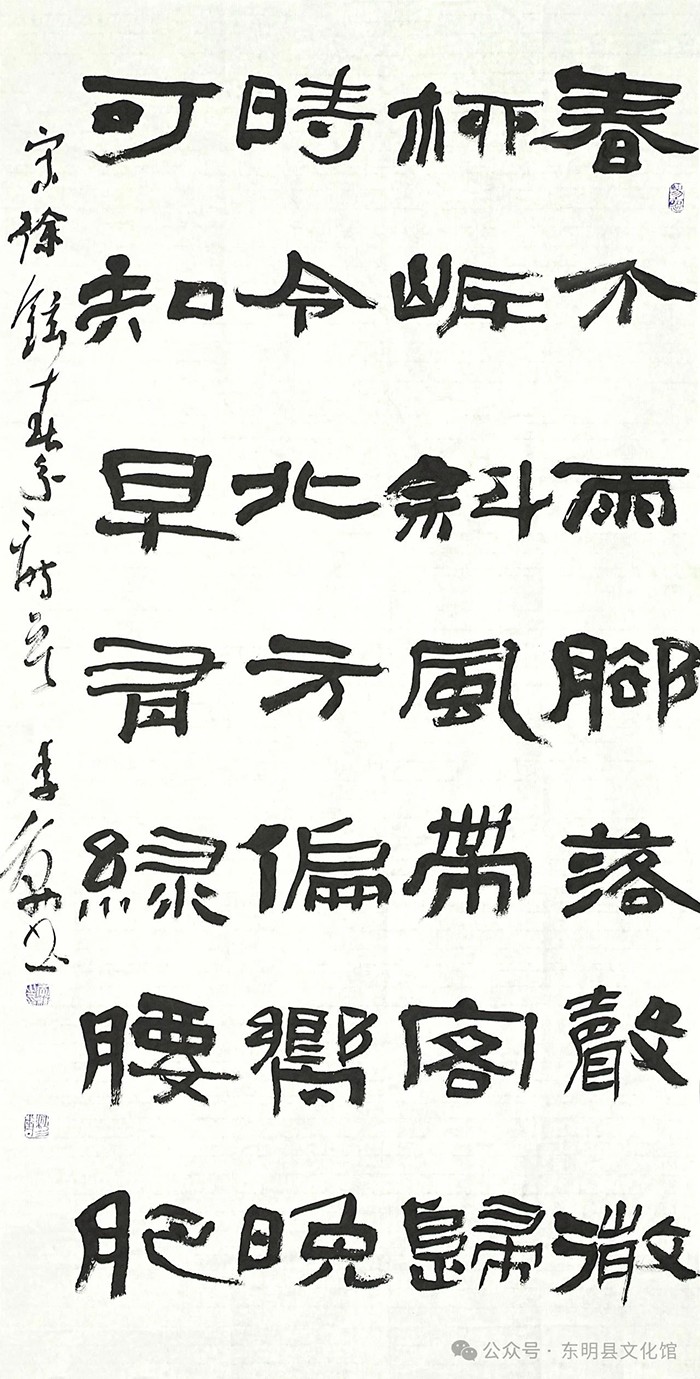 春分雨腳落聲微
柳岸斜風帶客歸
時令北方偏嚮晚
可知早有綠腰肥
宋徐鉉春分 李
公众号 · 东明县文化馆